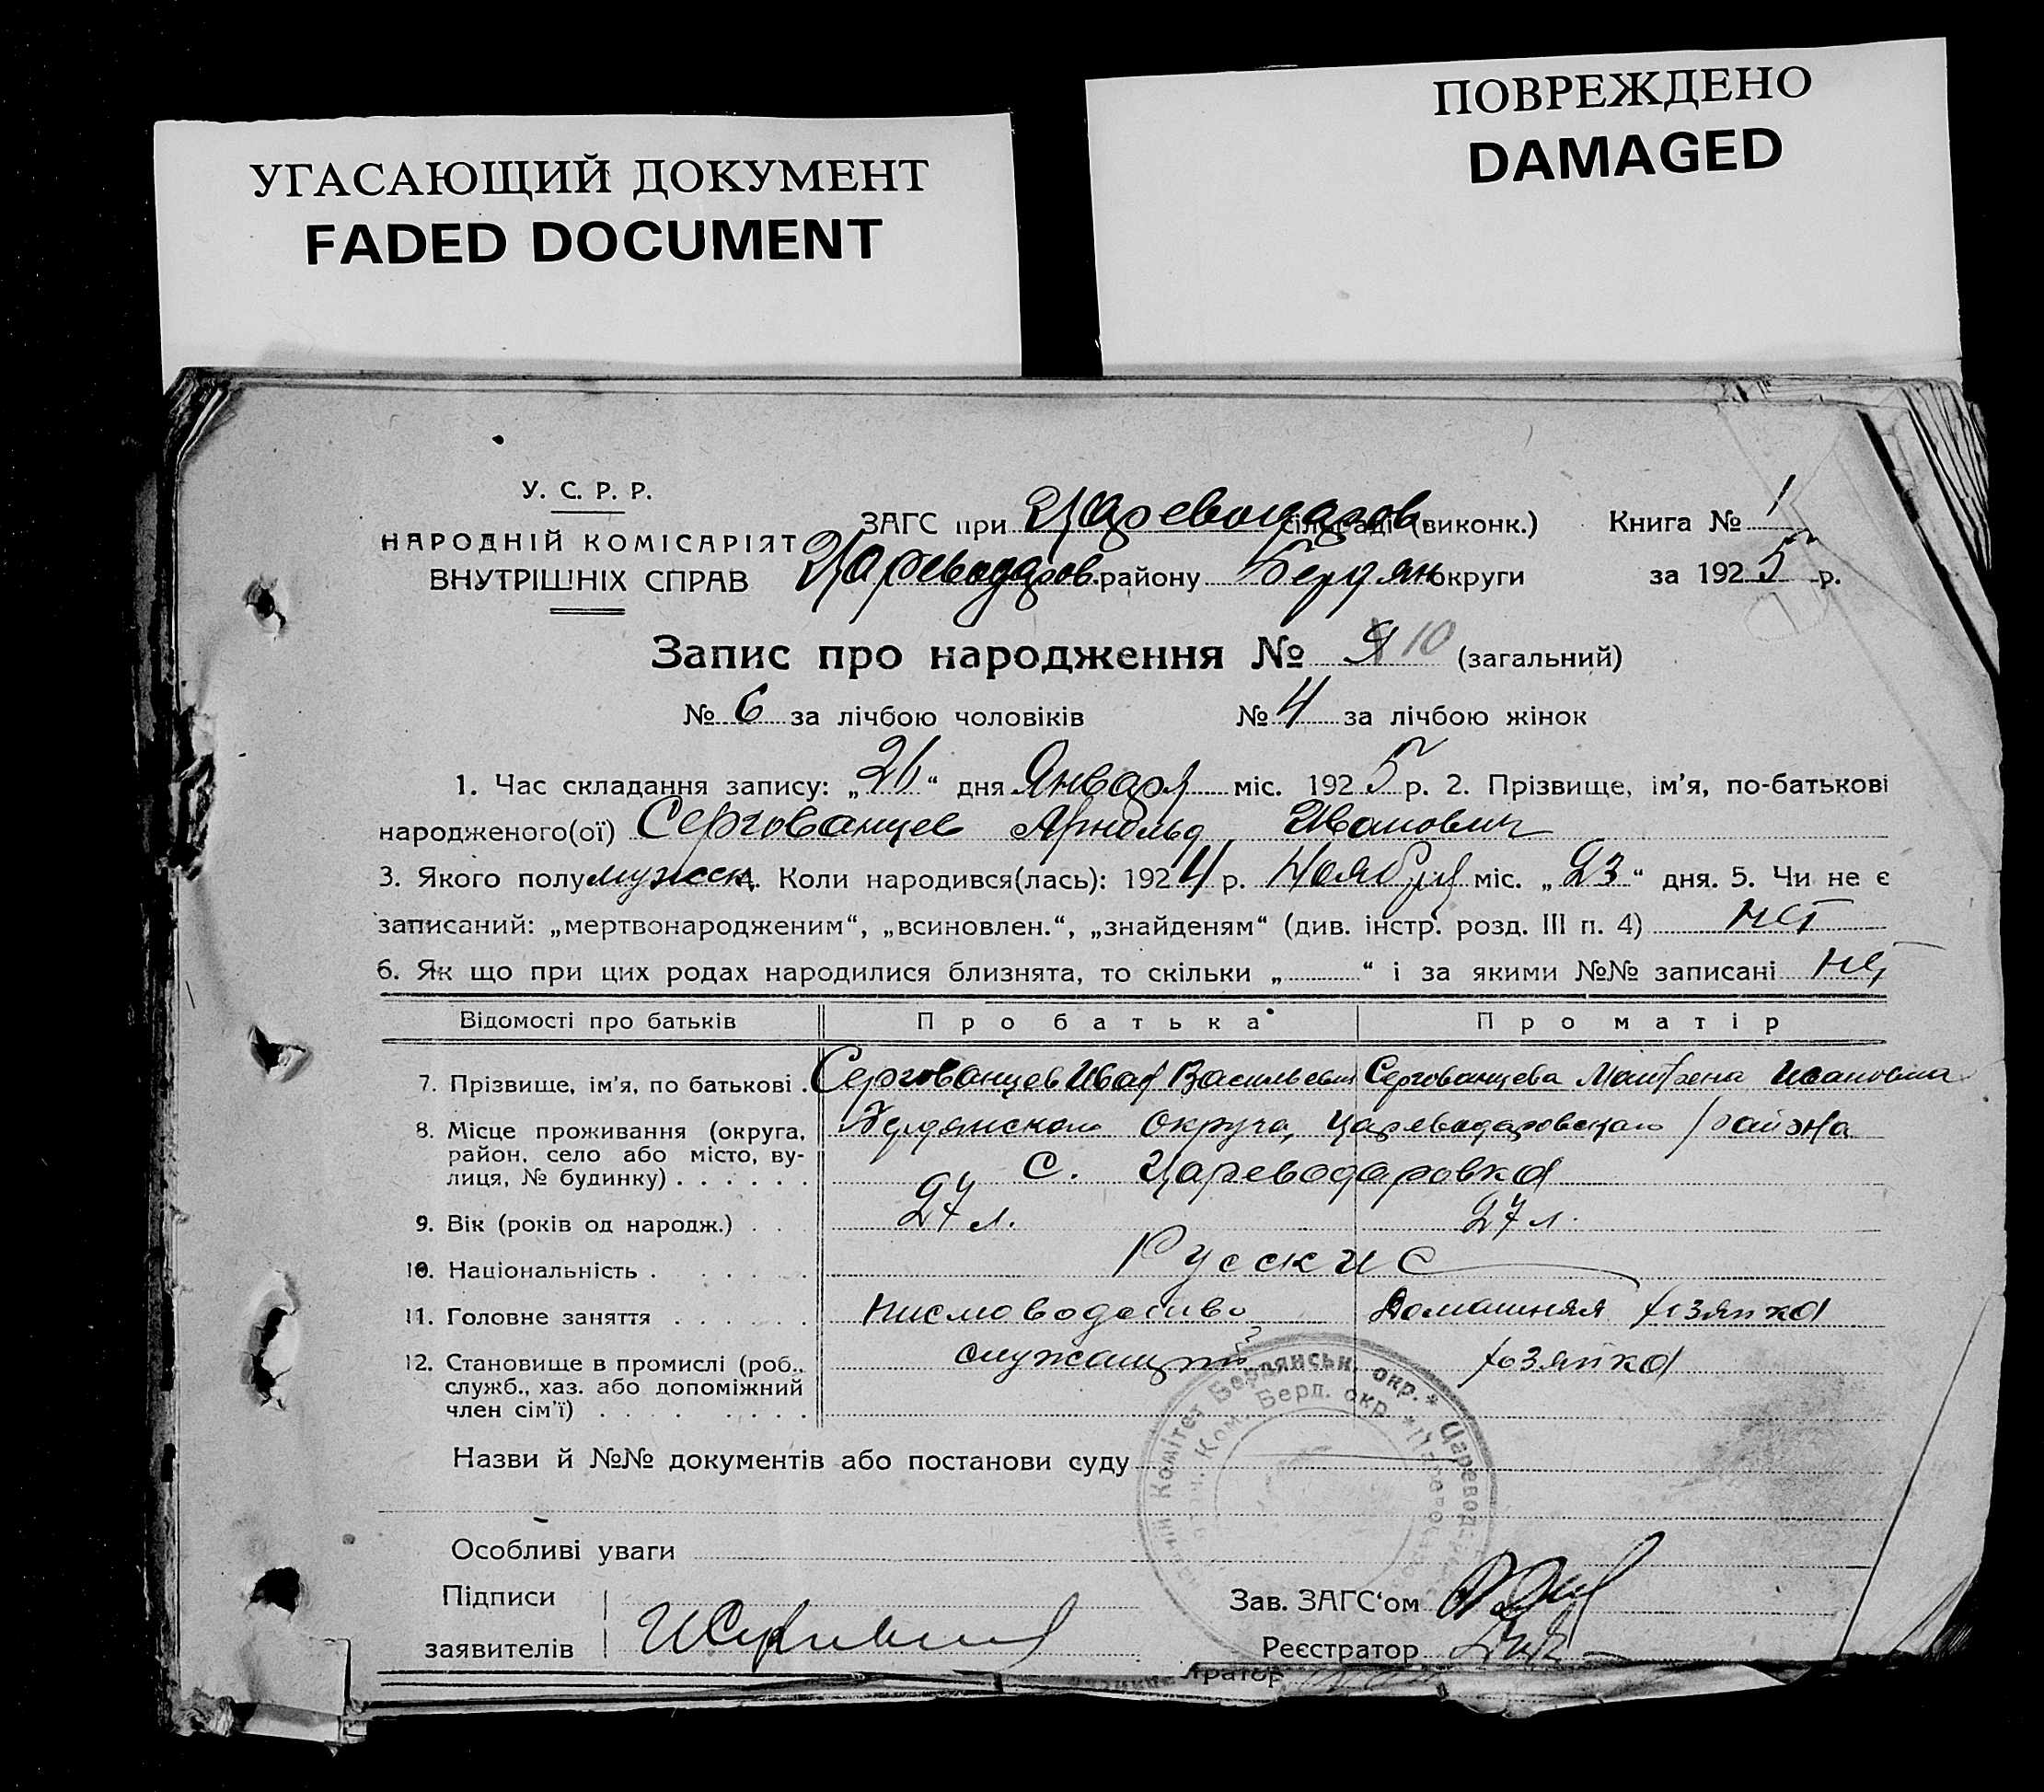 УГАСАЮЩИЙ ДОКУМЕНТ
FADED DOCUMENT
ПОВРЕЖДЕНО
DAMAGED
У. С. Р. Р.
НАРОДНІЙ КОМІСАРІЯТ
ВНУТРІШНІХ СПРАВ
ЗАГС при Цареводаров. сільраді (виконк.) Книга № 1
Цареводаров. району Бердян округи за 1925 р.
Запис про народження № 9 10 (загальний)
№ 6 за лічбою чоловіків № 4 за лічбою жінок
1. Час складання запису: „26“ дня Января міс. 1925 р. 2. Прізвище, ім’я, по-батькові
народженого(ої) Сергованцев Арнольд Иванович
3. Якого полу мужск. Коли народився(лась): 1924 р. Ноября міс. „23“ дня. 5. Чи не є
записаний: „мертвонародженим“, „всиновлен.“, „знайденям“ (див. інстр. розд. III п. 4) нет
6. Як що при цих родах народилися близнята, то скільки „ “ і за якими №№ записані нет
Відомості про батьків Про батька Про матір
7. Прізвище, ім’я, по батькові . Сергованцев Иван Васильевич Сергованцева Матрена Ивановна
8. Місце проживання (округа, район, село або місто, вулиця, № будинку) . . . . . . Бердянского округа, Цареводаровского района
с. Цареводаровка
9. Вік (років од народж.) . . 27 л. 27 л.
10. Національність . . . . . . Русские
11. Головне заняття . . . . . . писмоводство Домашняя хозяйка
12. Становище в промислі (роб., служб., хаз. або допоміжний член сім’ї) . . . . . . . служащий хозяйка
Назви й №№ документів або постанови суду
Особливі уваги
Підписи
заявителів
Зав. ЗАГС‘ом
Реєстратор
тратор
Комітет Бердянськ. окр. * Царевод
Ком. Берд. окр *